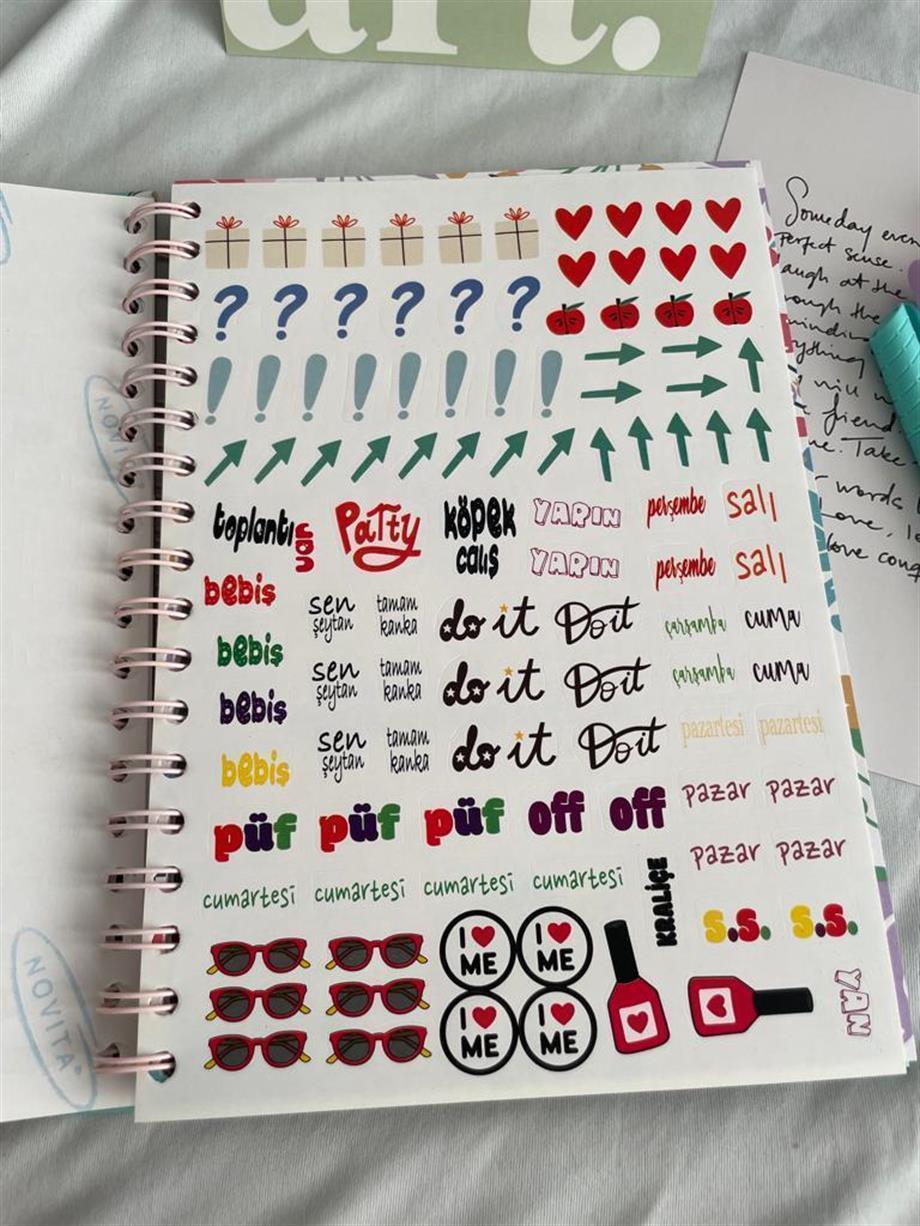 art.
? ? ? ? ? ?
! ! ! ! ! ! ! !
toplantı var Party köpek YARIN perşembe salı
calış YARIN perşembe salı
bebiş sen şeytan tamam kanka do it Do it çarşamba cuma
bebiş sen şeytan tamam kanka do it Do it çarşamba cuma
bebiş sen şeytan tamam kanka do it Do it pazartesi pazartesi
bebiş
püf püf püf off off pazar pazar
pazar pazar
cumartesi cumartesi cumartesi cumartesi KRALİÇE
s.s. s.s.
I ME I ME
I ME I ME
YAN
NOVITA
Someday
Perfect sense.
at the
the
will
friend.
Take
words
Love,
love